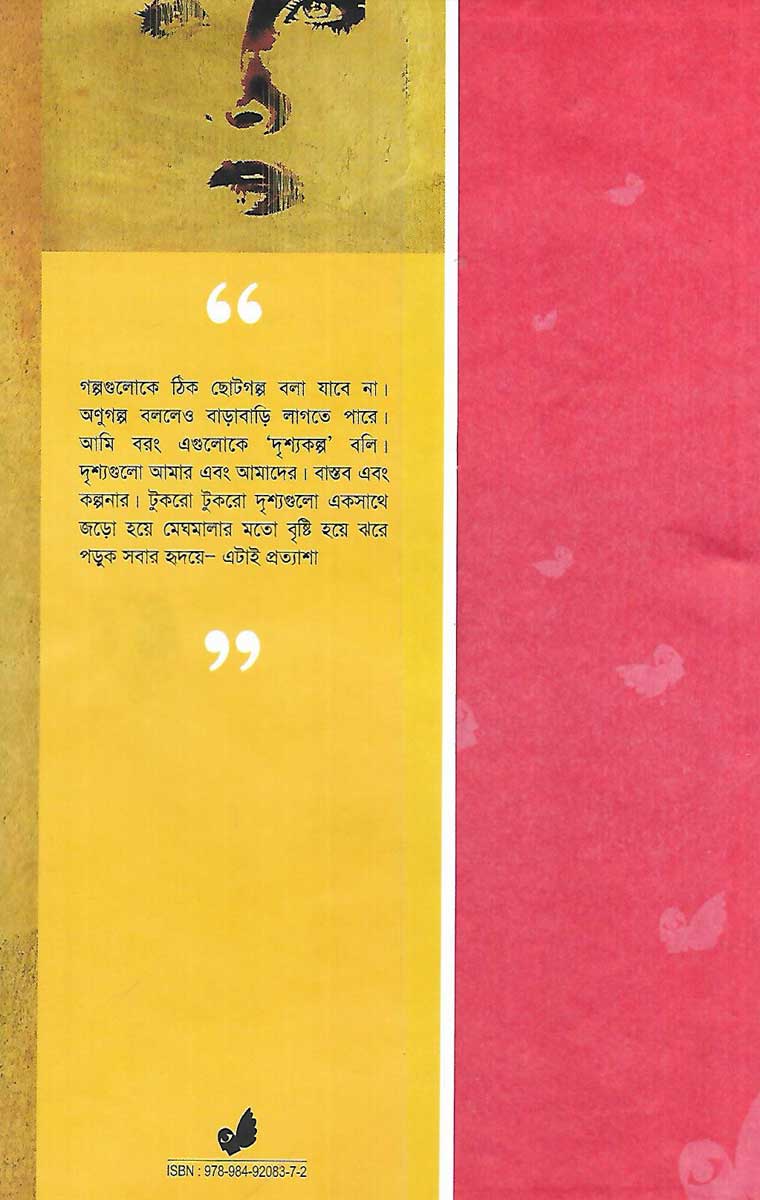 “
গল্পগুলোকে ঠিক ছোটগল্প বলা যাবে না।
অণুগল্প বললেও বাড়াবাড়ি লাগতে পারে।
আমি বরং এগুলোকে ‘দৃশ্যকল্প’ বলি।
দৃশ্যগুলো আমার এবং আমাদের। বাস্তব এবং
কল্পনার। টুকরো টুকরো দৃশ্যগুলো একসাথে
জড়ো হয়ে মেঘমালার মতো বৃষ্টি হয়ে ঝরে
পড়ুক সবার হৃদয়ে– এটাই প্রত্যাশা
”
ISBN : 978-984-92083-7-2